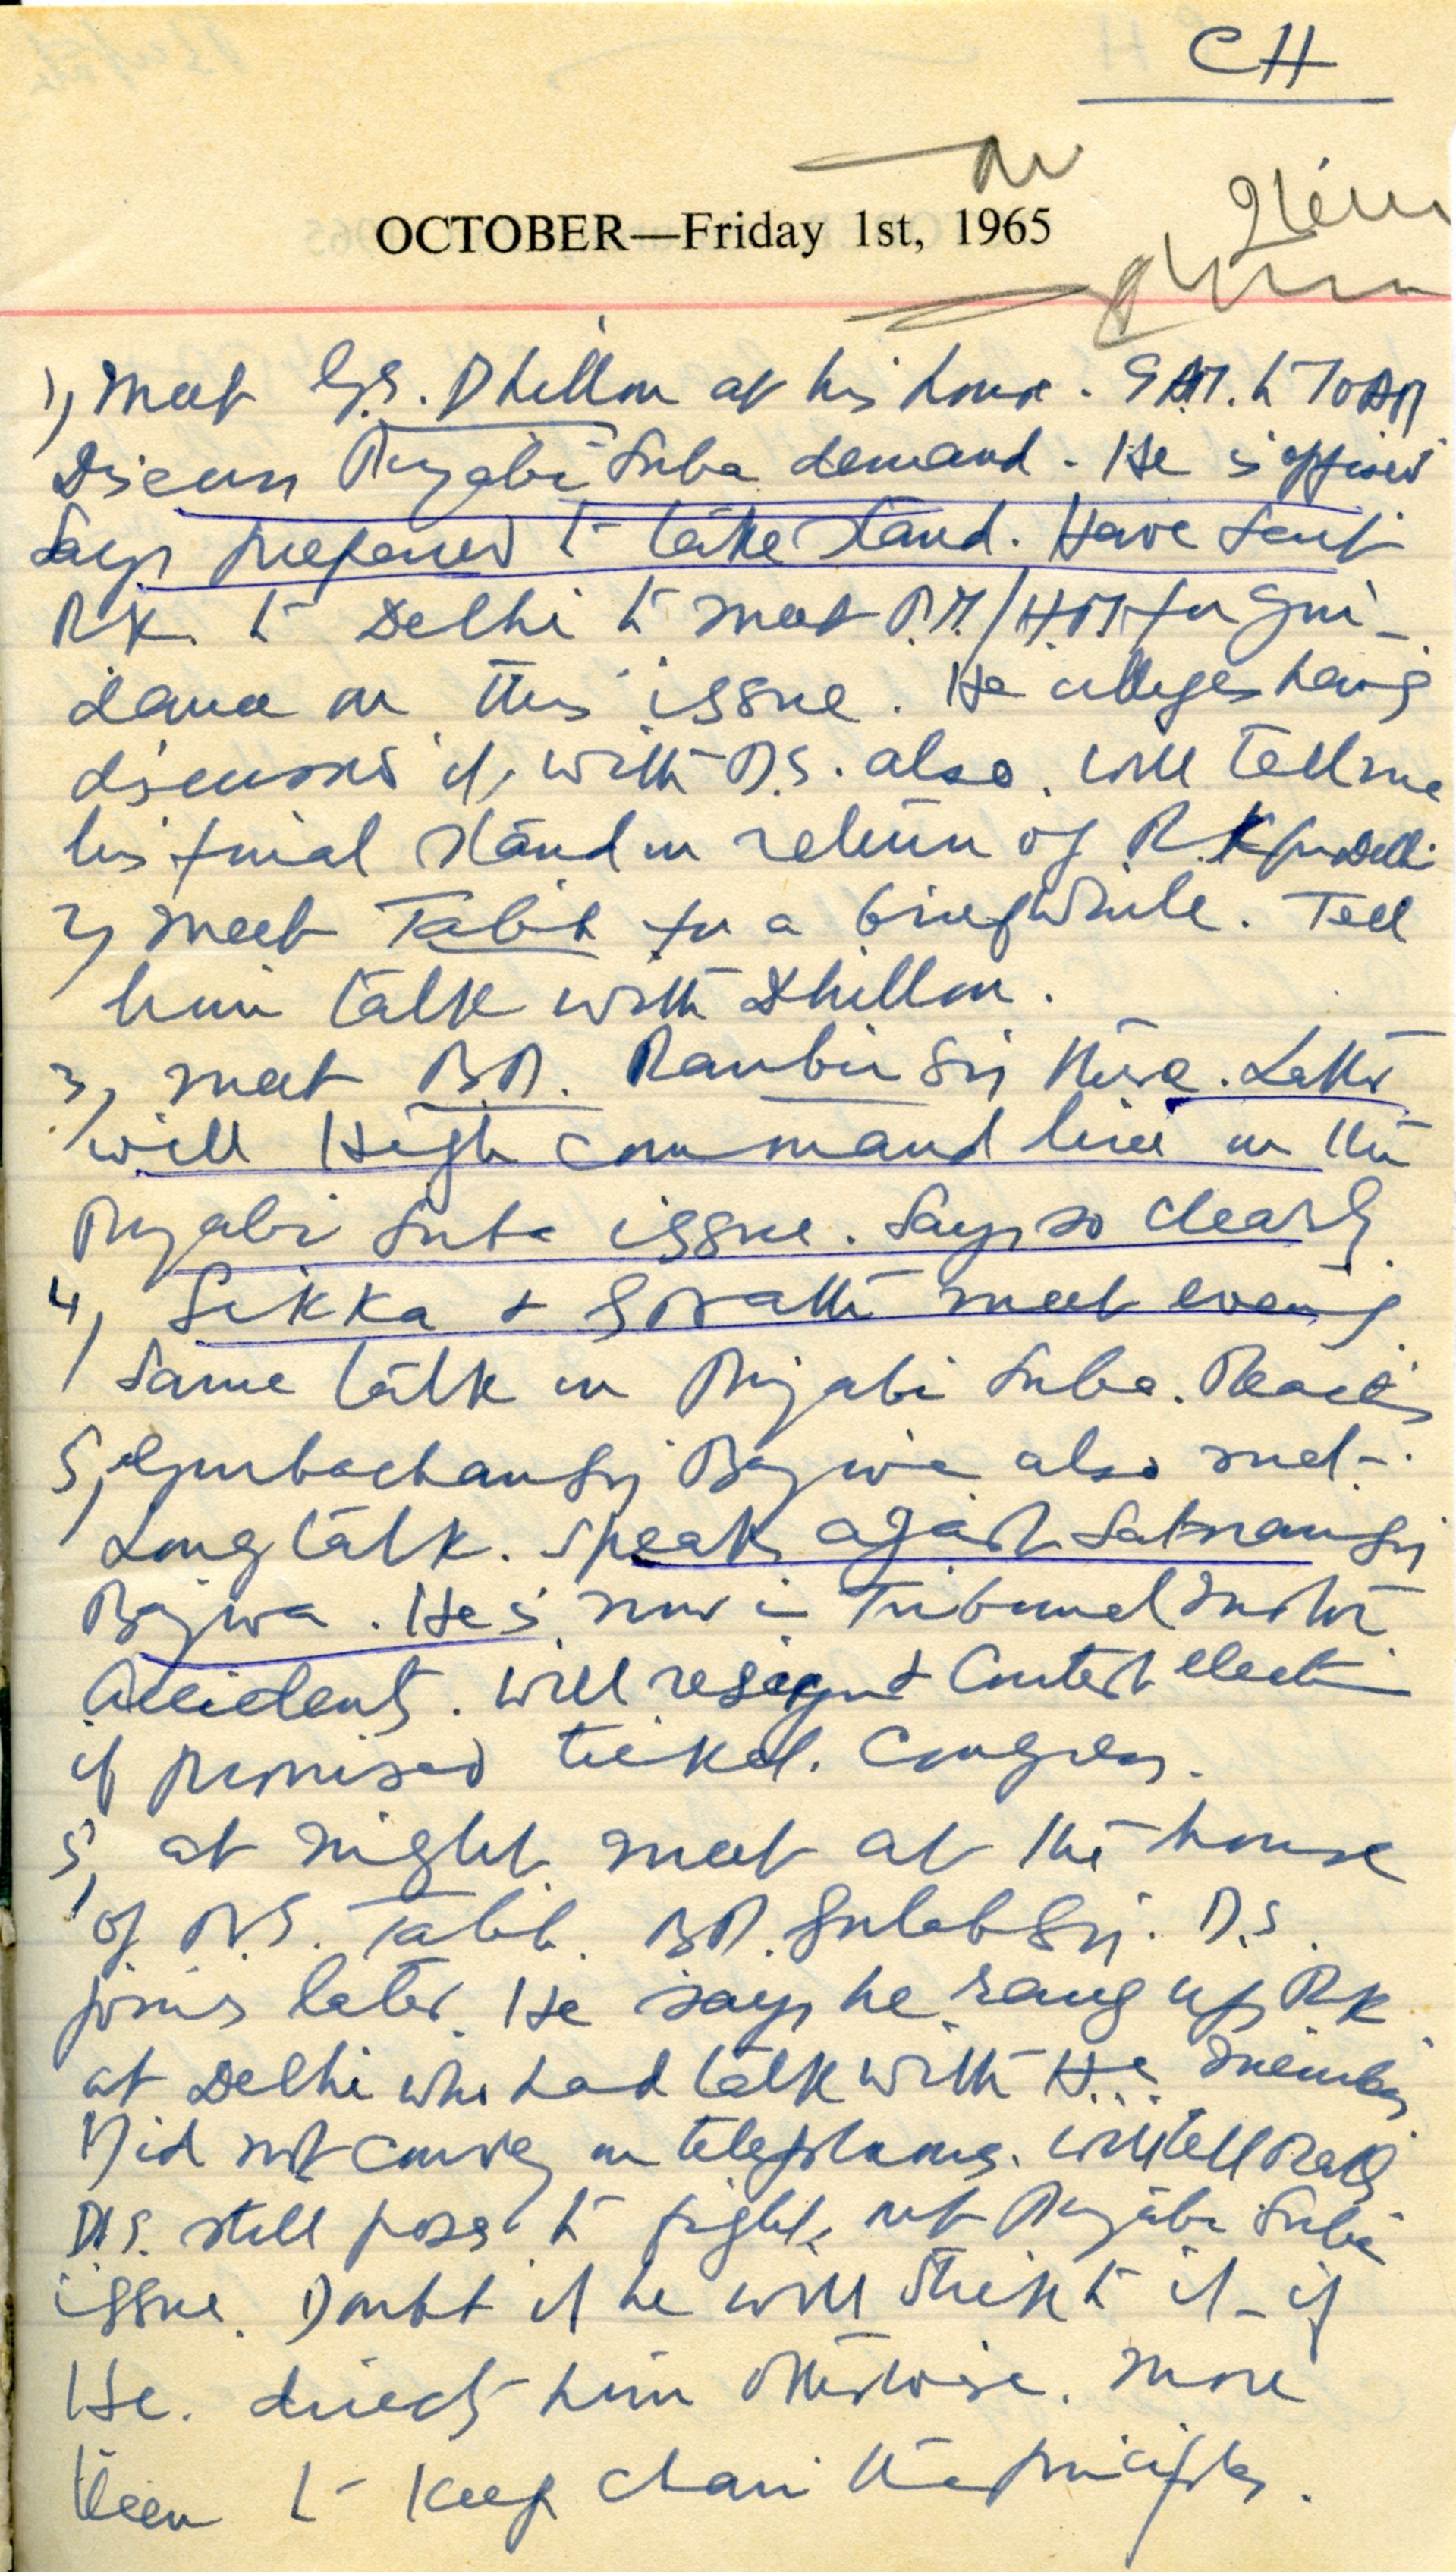 CH
OCTOBER—Friday 1st, 1965
1, Meet G.S. Dhillon at his house. 9 AM. to 10 AM
Discuss Punjabi Suba demand. He is opposed
Says prepared to take stand. Have sent
RK. to Delhi to meet P.M./H.M. for gui-
dance on this issue. He alleges having
discussed it with D.S. also. Will tell me
his final stand on return of R.K from Delhi
2, Meet Talib for a brief while. Tell
him talk with Dhillon.
3, Meet B.D. Ranbir Sing there. Latter
will High command line on the
Punjabi Suba issue. Says so clearly.
4, Sikka & meet evening
Same talk on Punjabi Suba.
5, Gurbachan Sing Bajwa also met.
Long talk. Speaks against Satnam Sing
Bajwa. He is now in Tribunal Motor
Accidents. Will resign & Contest election
if promised ticket. Congress.
5, at night meet at the house
of R.S. Talib. B.D. Gulab Sing. D.S.
joins later. He says he rang up RK
at Delhi who had talk with H.C.
Did not convey on telephone. Will tell
D.S. still poses to fight, on Punjabi Suba
issue. Doubt if he will stick to it - if
H.C. directs him otherwise. More
keen to keep chair than principles.